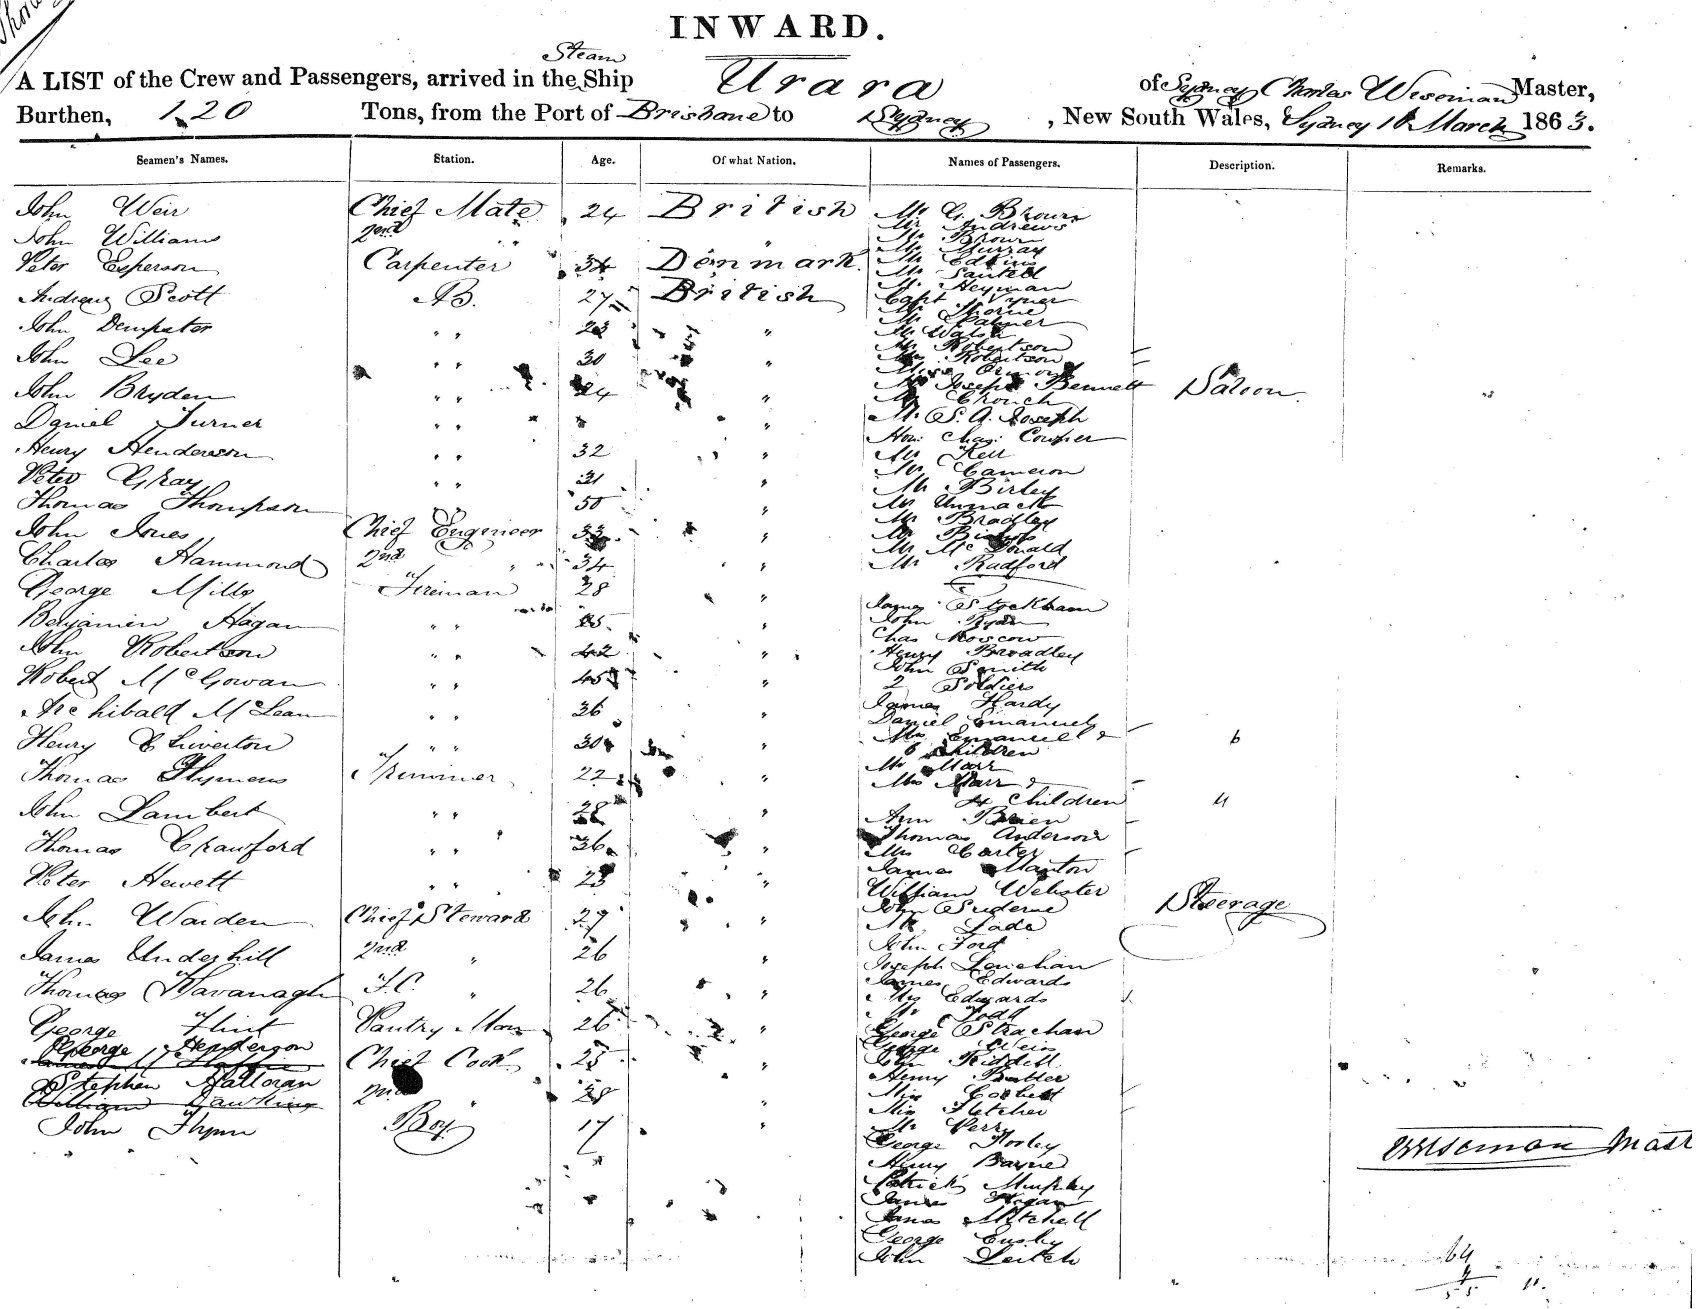 INWARD.
A LIST of the Crew and Passengers, arrived in the Steam Ship Urara of Sydney Charles Wiseman Master,
Burthen, 120 Tons, from the Port of Brisbane to Sydney, New South Wales, Sydney 16 March 1863.
Seamen's Names. Station. Age. Of what Nation. Names of Passengers. Description. Remarks.
John Weir Chief Mate 24 British
John Williams 2nd " "
Peter Esperson Carpenter 34 Denmark
Andrew Scott AB. 27 British
John Dempster " " 23 "
John Lee " " 30 "
John Bryden " " 24 "
Daniel Turner " " "
Henry Henderson " " 32 "
Peter Gray " " 21 "
Thomas Thompson 50 "
John Jones Chief Engineer 33 "
Charles Hammond 2nd " 34 "
George Mills Fireman 28 "
Benjamin Hagan " " "
John Robertson " " 42 "
Robert McGowan " " 45 "
Archibald McLean " " 36 "
Henry " " 30 "
Thomas Hymens Trimmer 22 "
John Lambert " " 28 "
Thomas Crawford " " 26 "
Peter Hewett " " 23 "
John Warden Chief Steward 27 "
James Underhill 2nd " 26 "
Thomas Kavanagh F.C. " 26 "
George Flint Pantry Man 26 "
George Henderson
Chief Cook 25 "
Stephen Halloran
William Hawkins 2nd " 28 "
John Flynn Boy 17 "
Mr G. Brown
Mr Andrews
Mr Brown
Mr Murray
Mr Edkins
Mr Sautell
Mr Heyman
Capt Vyner
Mr Thorne
Mr Palmer
Mr Walsh
Mr Robertson
Mrs Robertson
Miss Ormond
Mr Joseph Bennett
Mr Crouch
Mr S. A. Joseph
Hon. Chas. Cowper
Mr Kell
Mr Cameron
Mr Birley
Mr Unmack
Mr Bradley
Mr
Mr McDonald
Mr Radford
Saloon.
James Stockham
John Ryan
Chas Roscow
Henry Bradley
John Smith
2 Soldiers
James Hardy
Daniel Emanuel
Mrs Emanuel &
6 Children 6
Mr Marr
Mrs Marr &
4 Children 4
Ann Brien
Thomas Anderson
Mrs Carter
James Manton
William Webster
John
Mr Lade
John Ford
Joseph Lenehan
James Edwards
Mrs Edwards
Mr Todd
George Strachan
George Weir
John Riddell
Henry Butler
Miss Corbett
Miss Fletcher
Mr Perry
George Hooley
Henry Bayne
Patrick Murphy
James Hogan
James Mitchell
George
John Leitch
Steerage
CWiseman Mast
64
4
55 11.